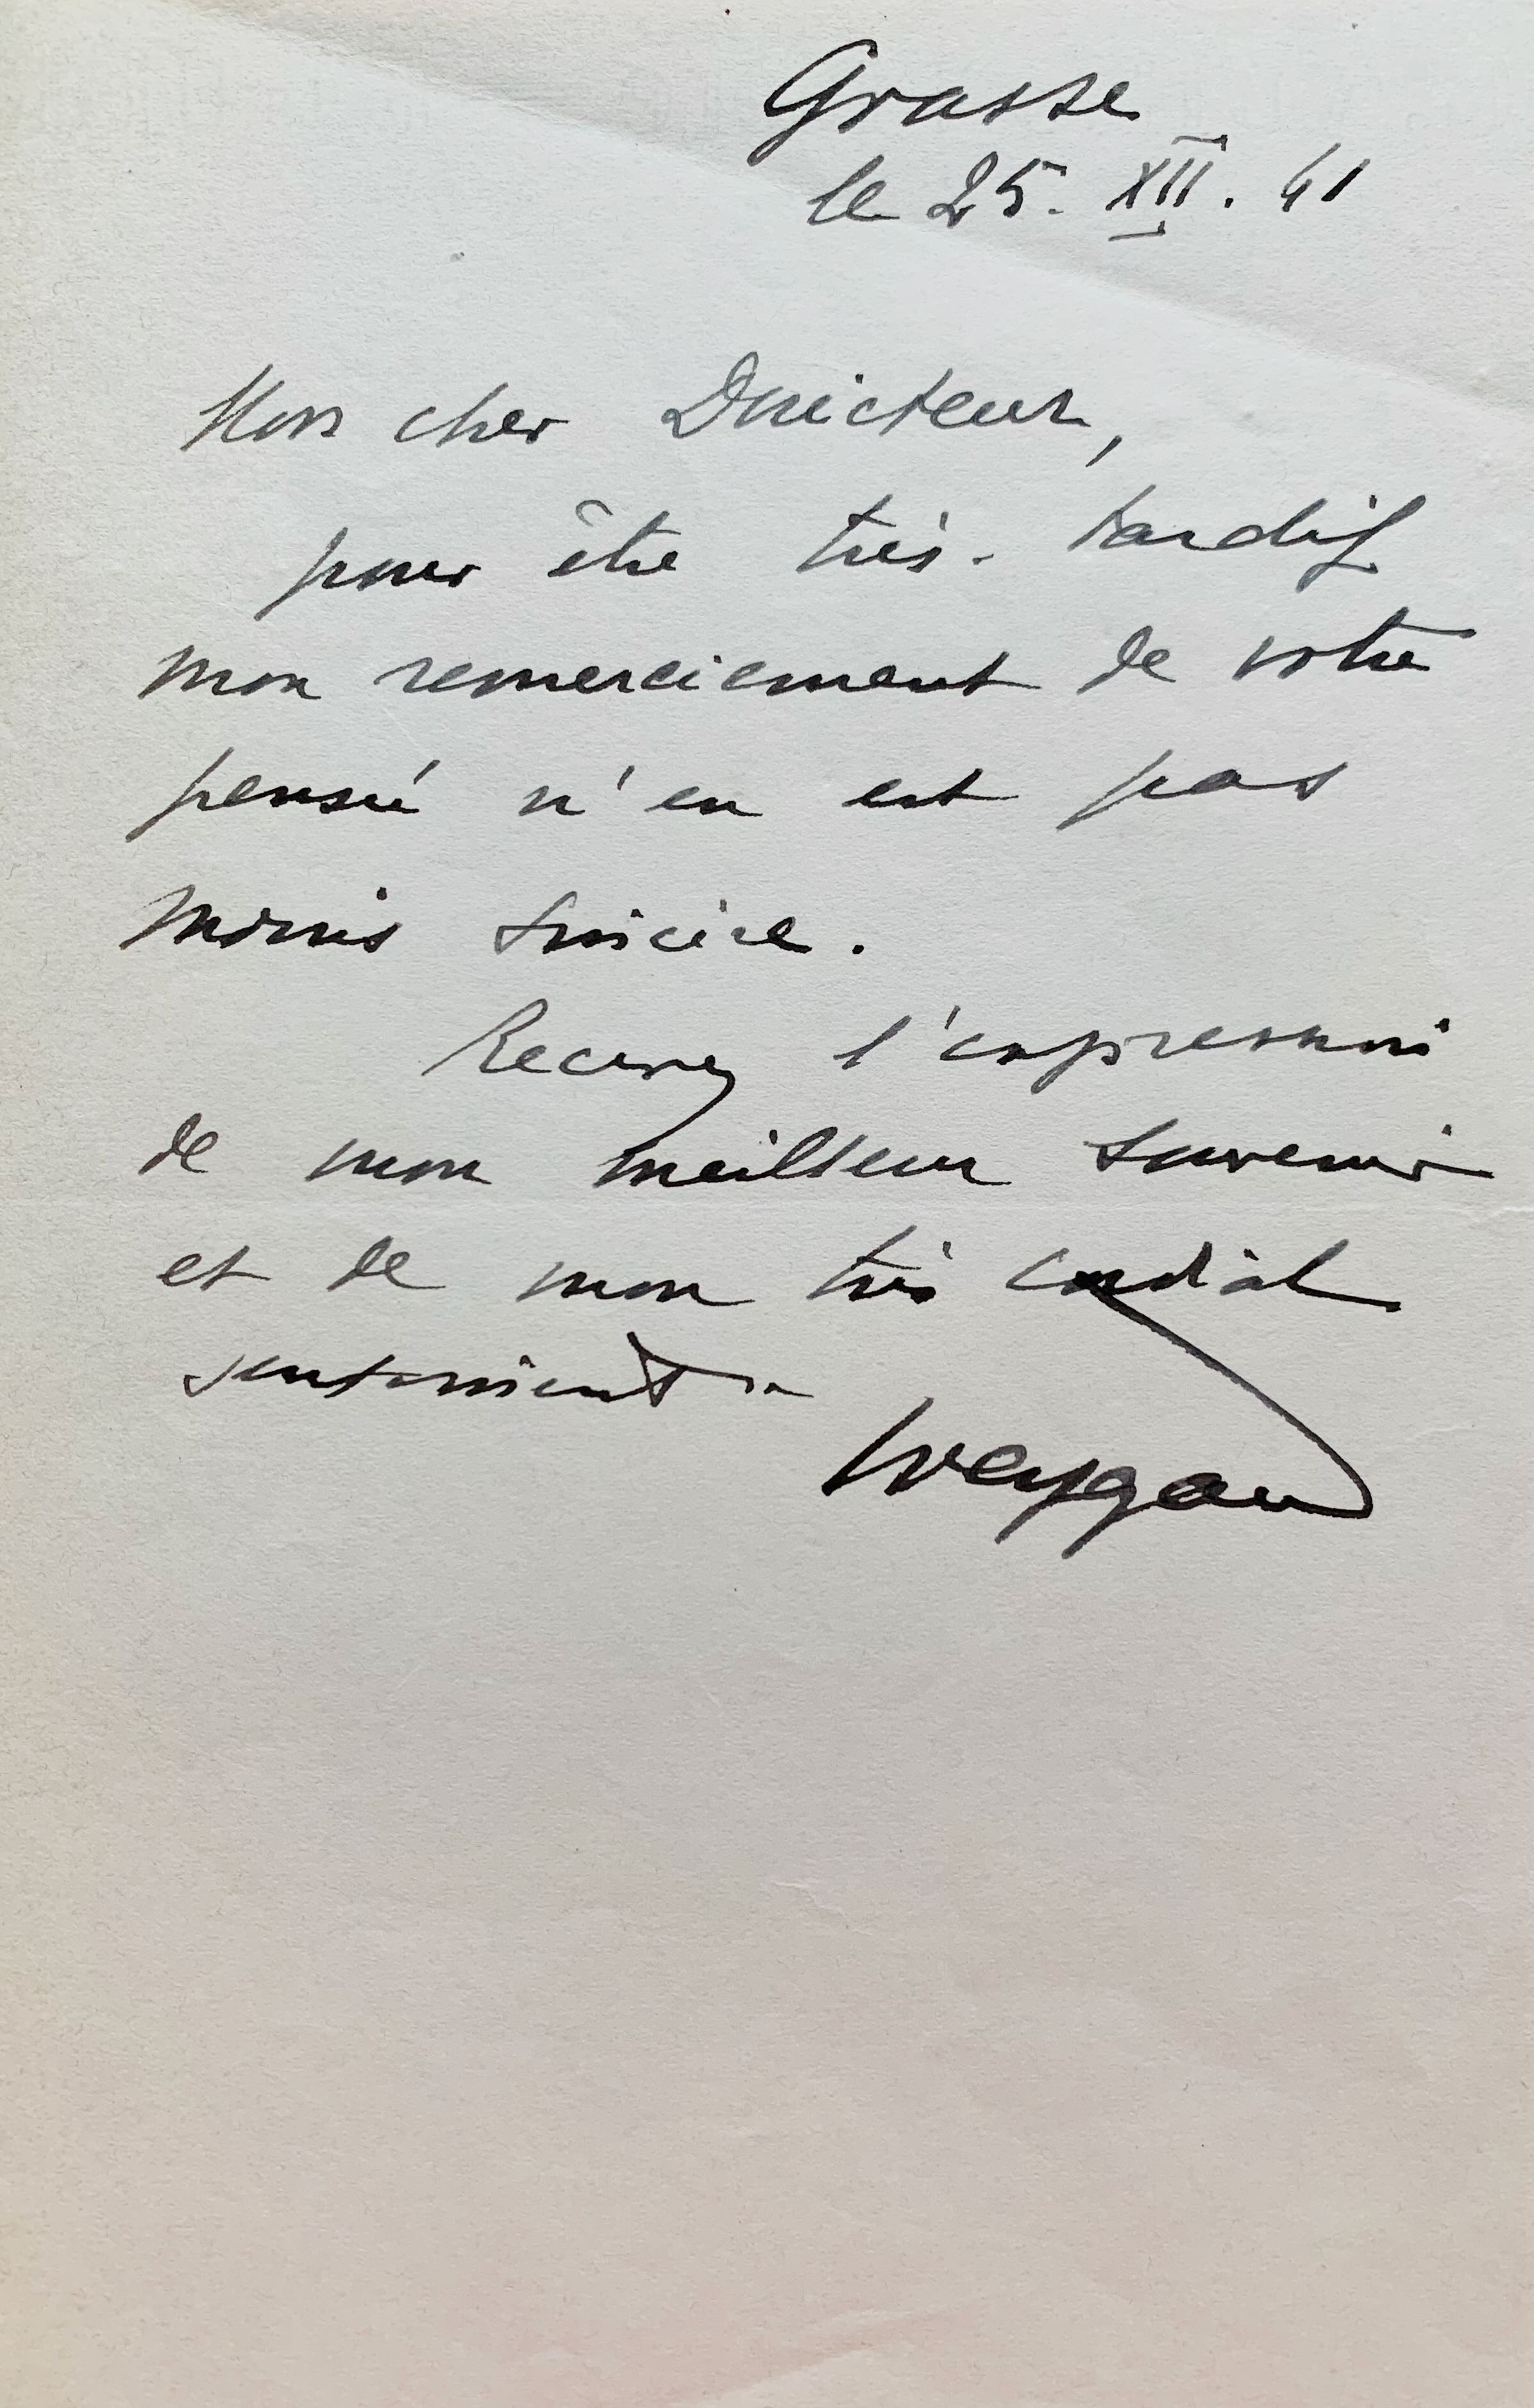 Grasse
le 25. XII. 41
Mon cher Directeur,
pour être très-tardif
mon remerciement de votre
pensée n'en est pas
moins sincère.
Recevez l'expression
de mon meilleur souvenir
et de mon très cordial
sentiment.
Weygand